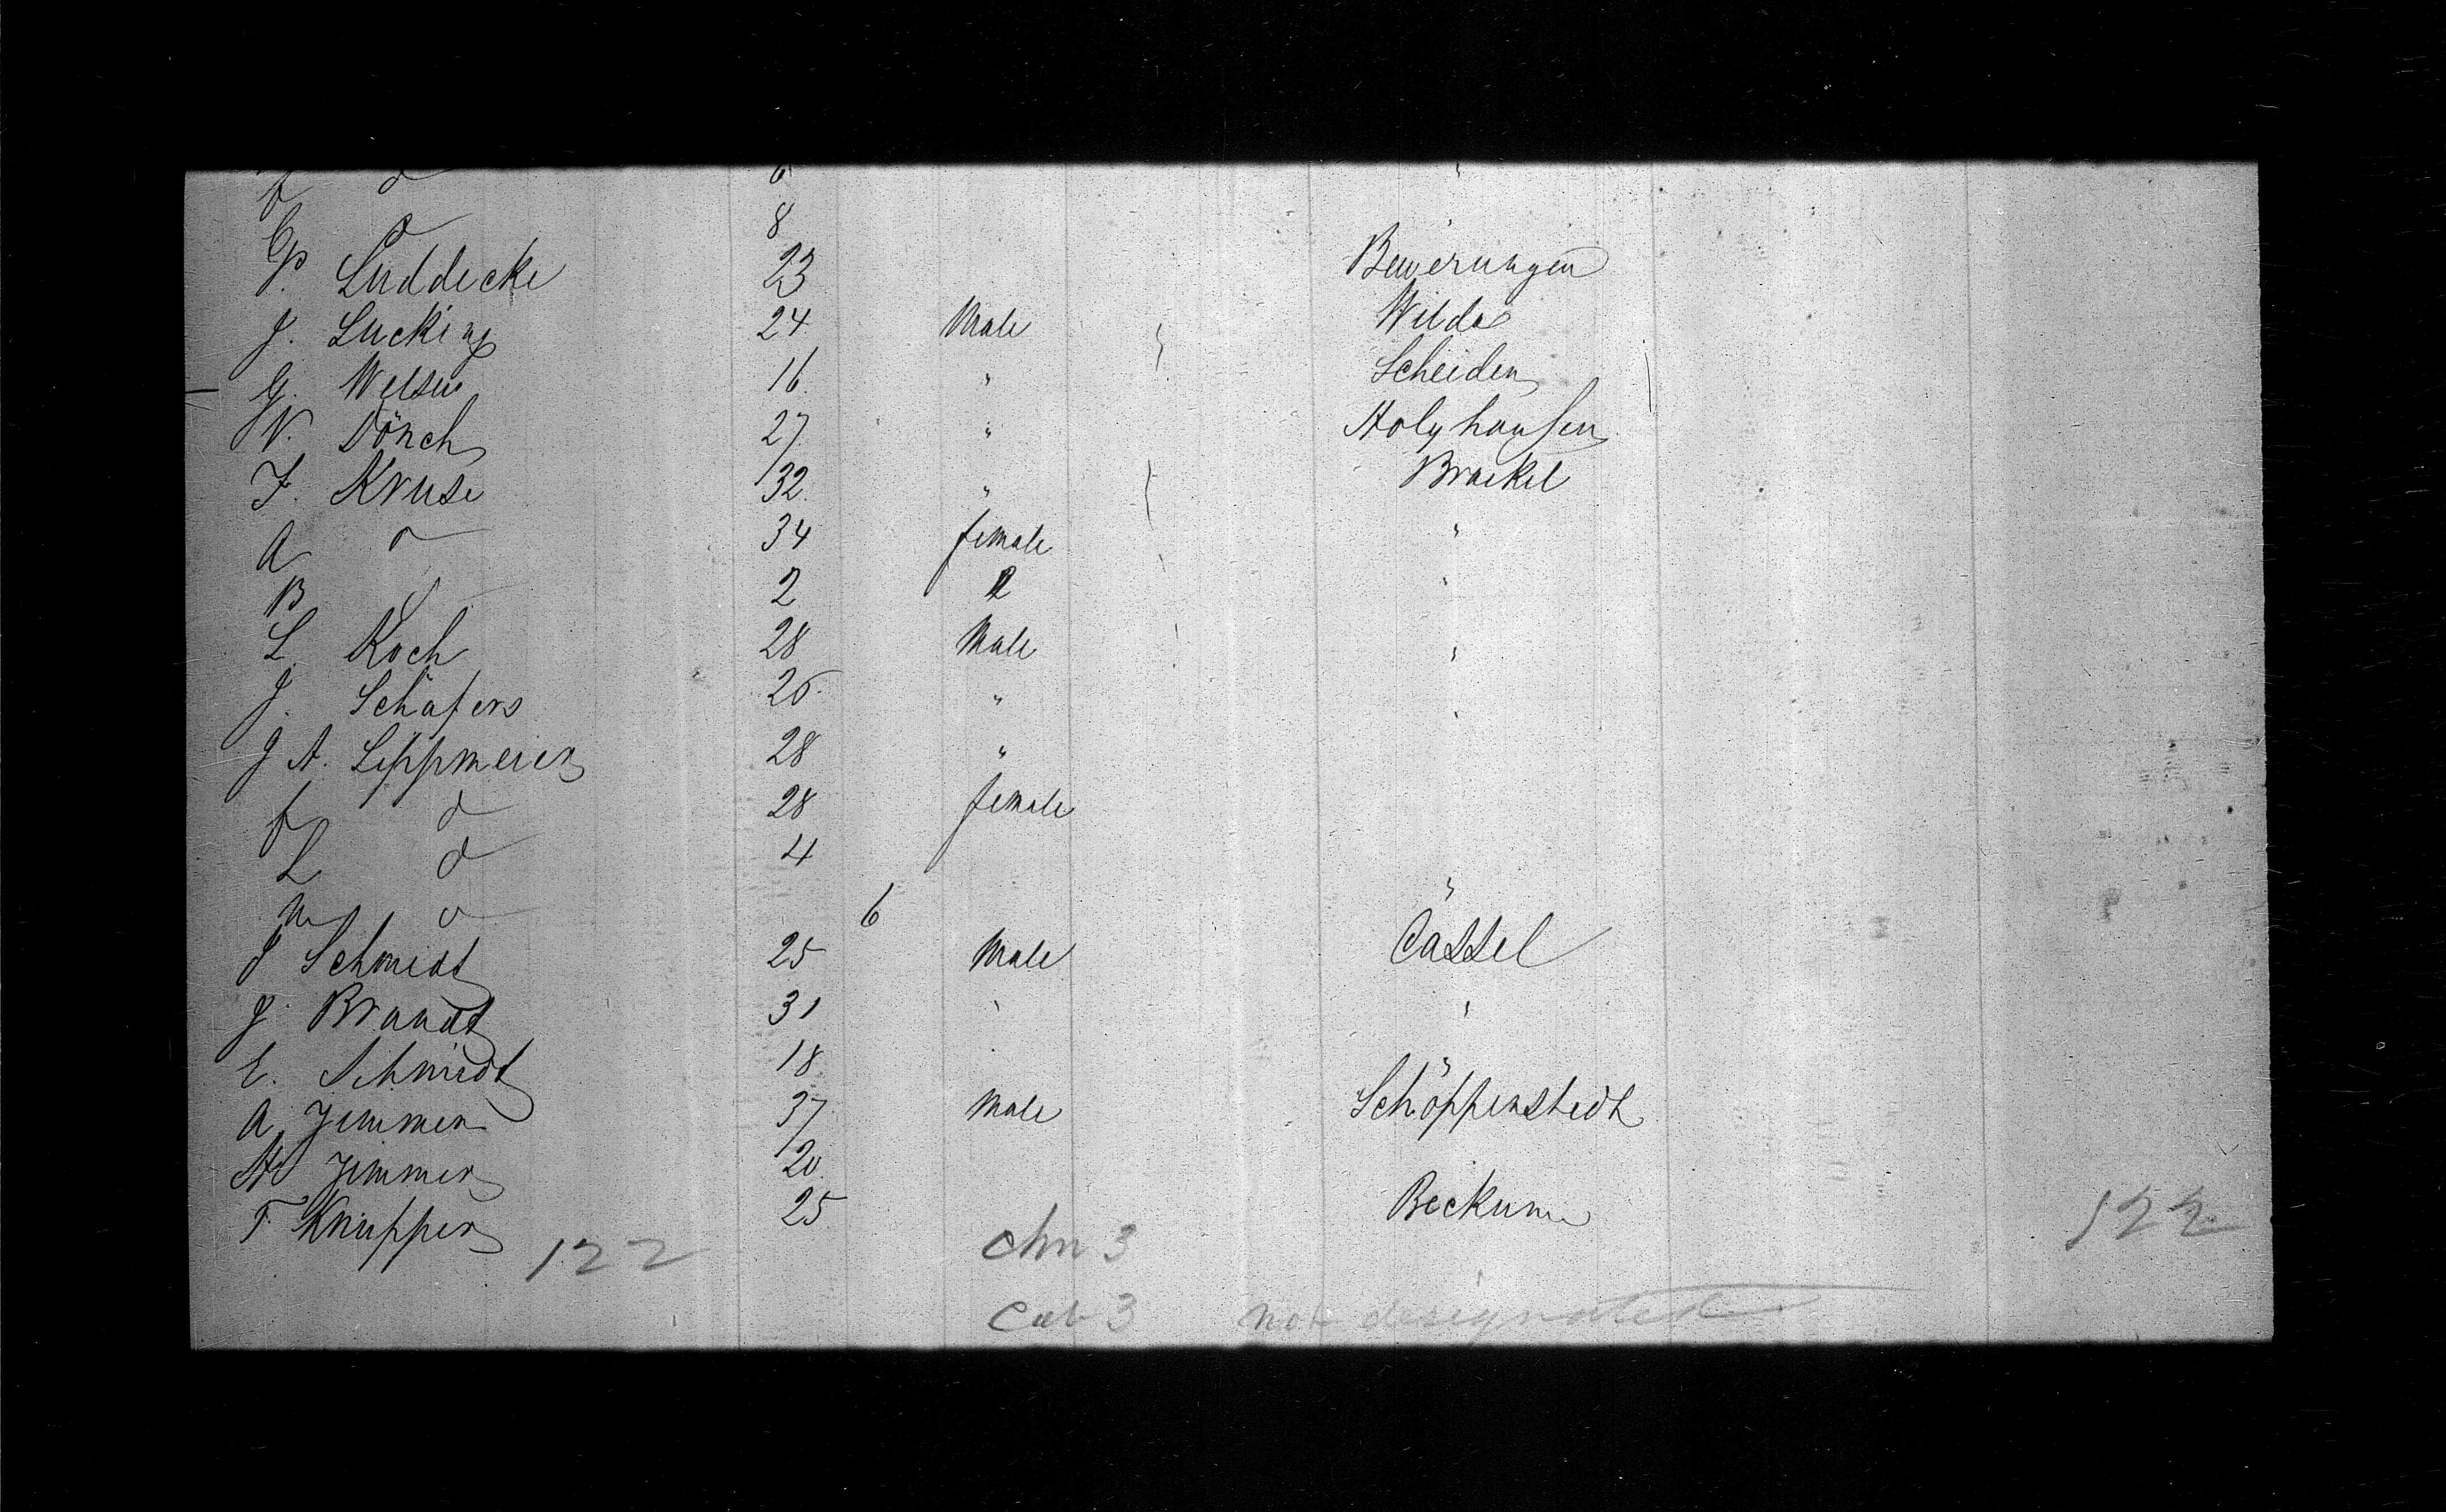 d 6 "
d 8
P. Luddecke 23 Bewerungen
J. Lucking 24 Male Wilda
G. Welsen 16 " Scheiden
N. Dönch 27 " Holyhausen
F. Kruse 32 " Braekel
A d 34 female "
B 2 "
L Koch 28 Male "
J. Schäfers 26 " "
J A. Lippmeier 28 "
f d 28 female
L d 4
m d 6 "
J Schmidt 25 Male Cassel
J. Brandt 31 " "
E. Schmidt 18 "
A Zimmer 37 Male Schöppenstedt
H Zimmer 20
F Knupper 25 Beckum
122 chn 3 122
Cab 3 not designated